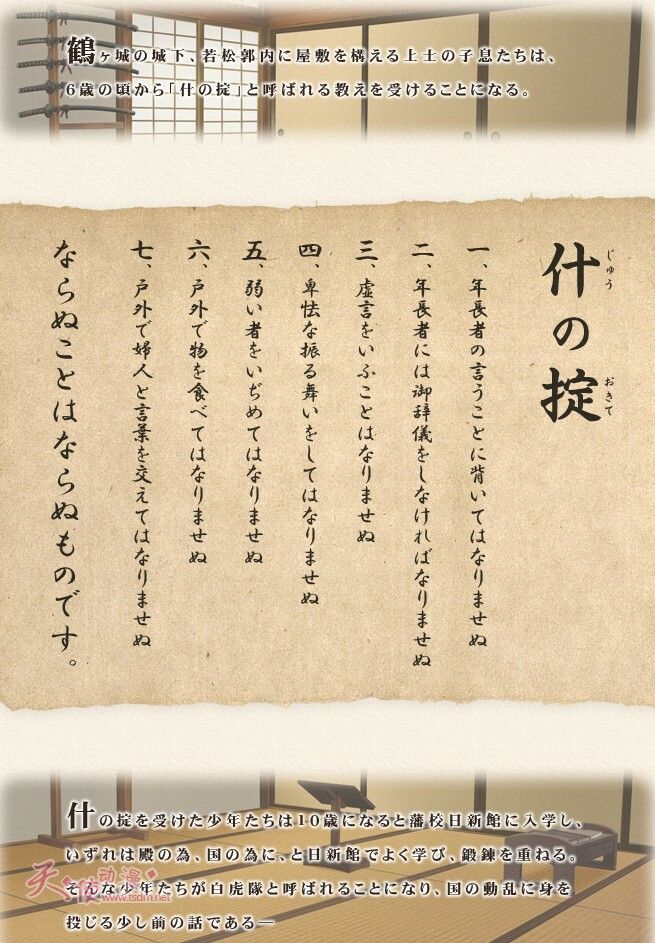 鶴ヶ城の城下、若松郭内に屋敷を構える上士の子息たちは、
6歳の頃から「什の掟」と呼ばれる教えを受けることになる。
じゅう おきて
什の掟
一、年長者の言うことに背いてはなりませぬ
二、年長者には御辞儀をしなければなりませぬ
三、虚言をいふことはなりませぬ
四、卑怯な振る舞いをしてはなりませぬ
五、弱い者をいぢめてはなりませぬ
六、戸外で物を食べてはなりませぬ
七、戸外で婦人と言葉を交えてはなりませぬ
ならぬことはならぬものです。
什の掟を受けた少年たちは10歳になると藩校日新館に入学し、
いずれは殿の為、国の為に、と日新館でよく学び、鍛錬を重ねる。
そんな少年たちが白虎隊と呼ばれることになり、国の動乱に身を
投じる少し前の話である―
天使动漫
www.tsdm.net